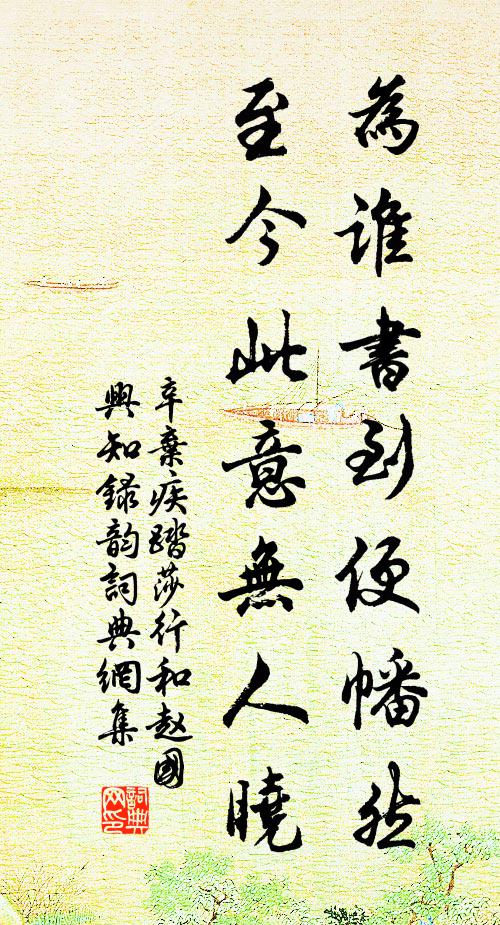 為誰書到便幡然
至今此意無人曉
辛棄疾踏莎行和赵國
興知録韵詞典網集
詞典
网印